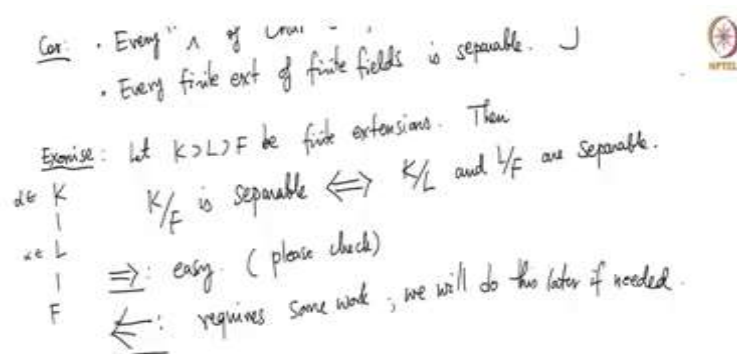 Cor: • Every ^ of
• Every finite ext of finite fields is separable.
NPTEL
Exercise: Let K⊃L⊃F be finite extensions. Then
α∈ K K/F is separable ⟺ K/L and L/F are separable.
|
α∈ L
| ⟹: easy. (please check)
F ⟸: requires some work; we will do this later if needed.